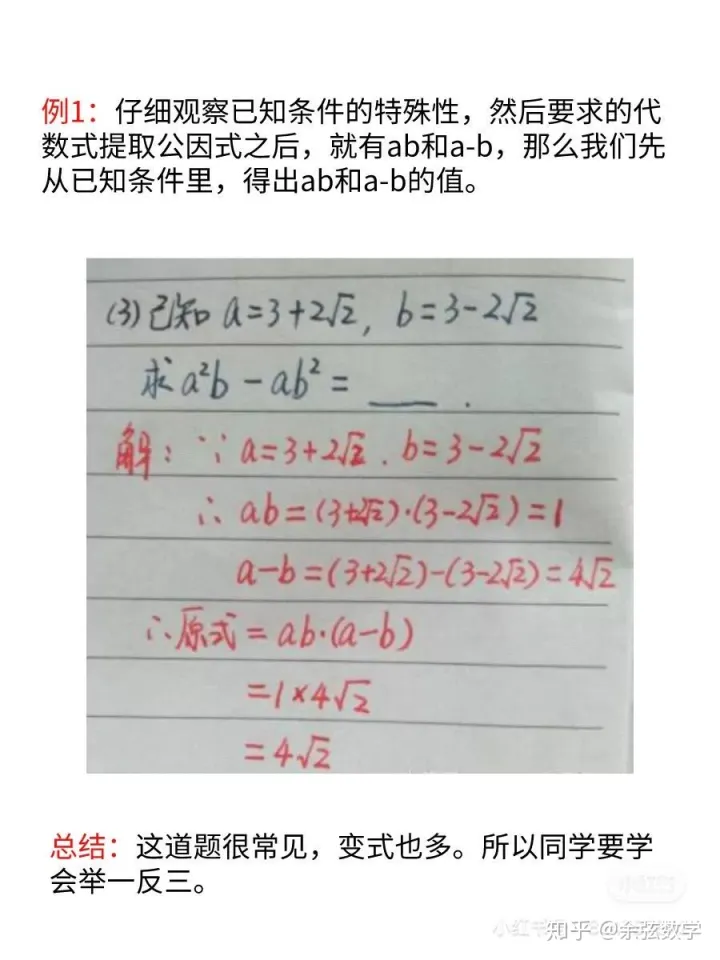 例1：仔细观察已知条件的特殊性，然后要求的代
数式提取公因式之后，就有ab和a-b，那么我们先
从已知条件里，得出ab和a-b的值。
(3)已知 a=3+2√2, b=3-2√2
求a²b-ab²=___.
解：∵ a=3+2√2. b=3-2√2
∴ ab=(3+2√2)·(3-2√2)=1
a-b=(3+2√2)-(3-2√2)=4√2
∴原式=ab·(a-b)
=1×4√2
=4√2
总结：这道题很常见，变式也多。所以同学要学
会举一反三。
小红书
知乎 @余弦数学